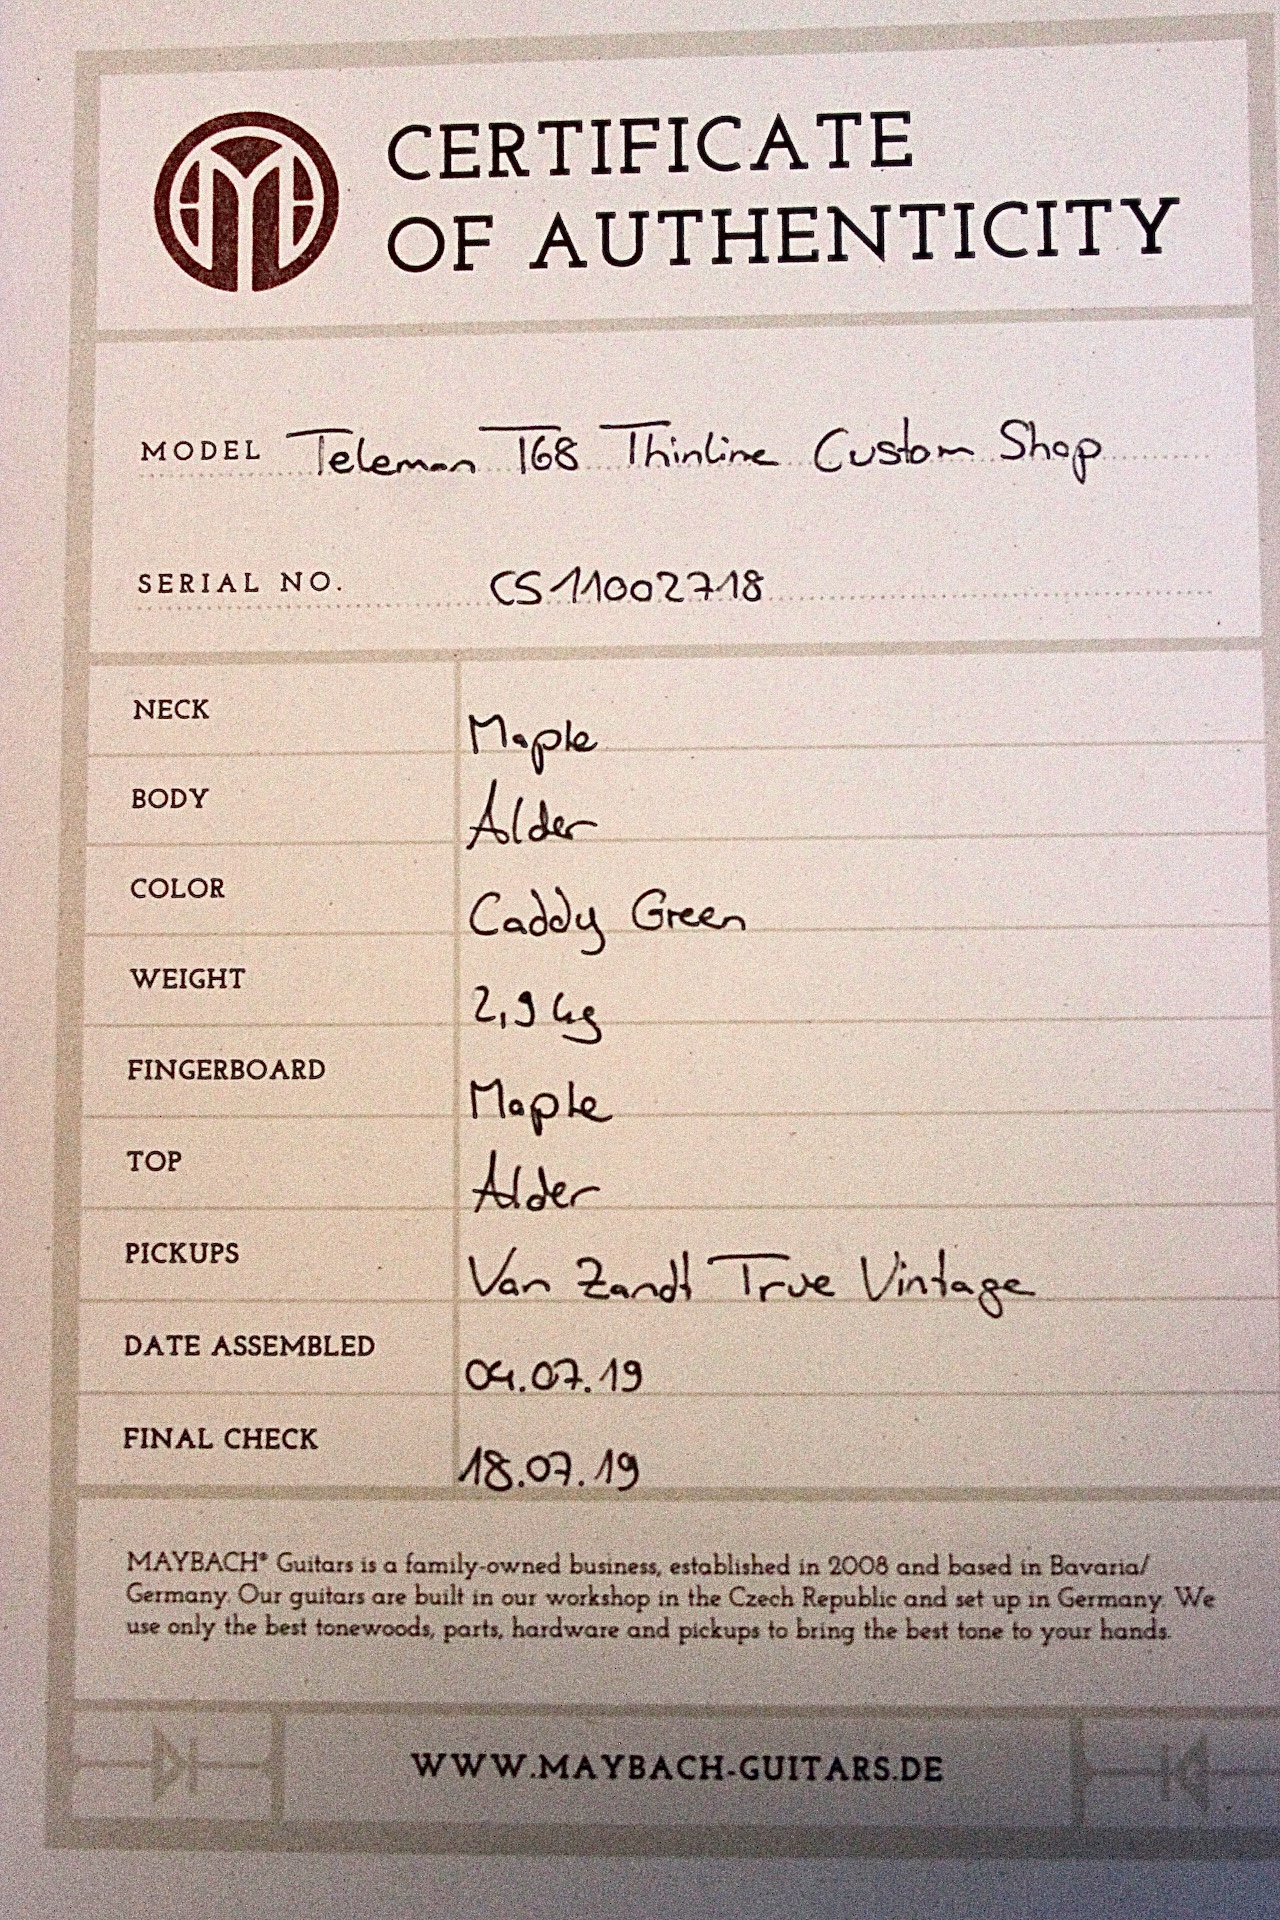 CERTIFICATE
OF AUTHENTICITY
MODEL Teleman T68 Thinline Custom Shop
SERIAL NO. CS11002718
NECK Maple
BODY Alder
COLOR Caddy Green
WEIGHT 2,9 kg
FINGERBOARD Maple
TOP Alder
PICKUPS Van Zandt True Vintage
DATE ASSEMBLED 04.07.19
FINAL CHECK 18.07.19
MAYBACH® Guitars is a family-owned business, established in 2008 and based in Bavaria/
Germany. Our guitars are built in our workshop in the Czech Republic and set up in Germany. We
use only the best tonewoods, parts, hardware and pickups to bring the best tone to your hands.
WWW.MAYBACH-GUITARS.DE